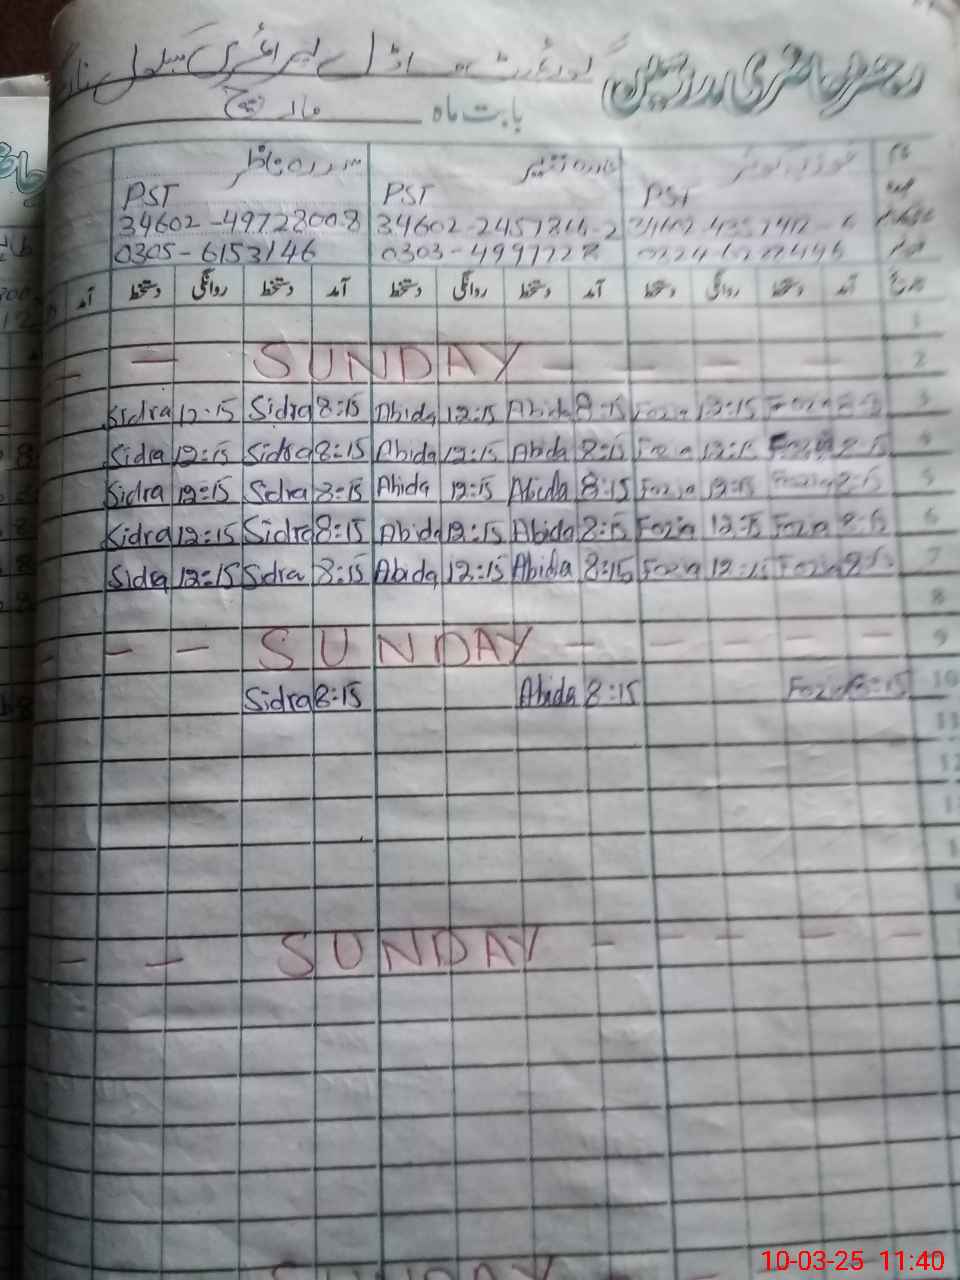 رجسٹر حاضری مدرسین گورنمنٹ ماڈل پرائمری سکول
بابت ماہ مارچ
نام سدرہ ناظر
عہدہ PST PST PST
34602-4972800-8 34602-2457844-2
0305-6153146 0303-4997728
تاریخ آمد دستخط روانگی دستخط آمد دستخط روانگی دستخط آمد دستخط روانگی دستخط آمد
1
- SUNDAY - - - - 2
Sidra 12:15 Sidra 8:15 Abida 12:15 Abida 8:15 Fozia 12:15 Fozia 8:15 3
Sidra 12:15 Sidra 8:15 Abida 12:15 Abida 8:15 Fozia 12:15 Fozia 8:15 4
Sidra 12:15 Sidra 8:15 Abida 12:15 Abida 8:15 Fozia 12:15 Fozia 8:15 5
Sidra 12:15 Sidra 8:15 Abida 12:15 Abida 8:15 Fozia 12:15 Fozia 8:15 6
Sidra 12:15 Sidra 8:15 Abida 12:15 Abida 8:15 Fozia 12:15 Fozia 8:15 7
8
- - - SUNDAY - - - - - 9
Sidra 8:15 Abida 8:15 Fozia 8:15 10
11
12
- - SUNDAY - - - - -
SUNDAY
10-03-25 11:40